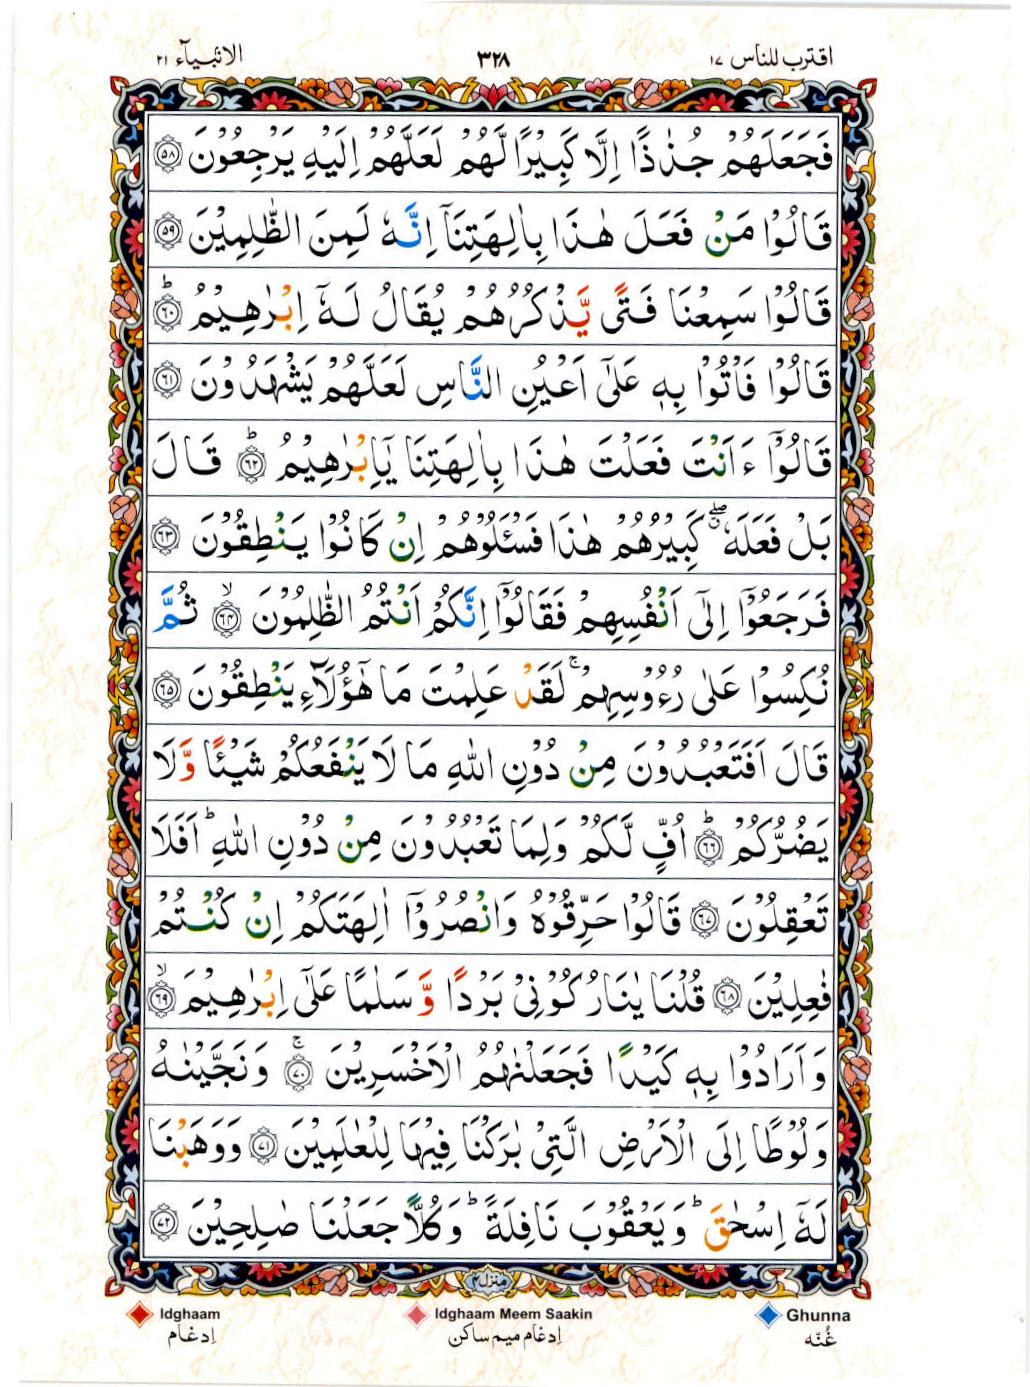 اقترب للناس ١٧
٣٢٨
الانبیآء ٢١
فَجَعَلَهُمْ جُذٰذًا اِلَّا كَبِيْرًا لَّهُمْ لَعَلَّهُمْ اِلَيْهِ يَرْجِعُوْنَ ۝٥٨
قَالُوْا مَنْ فَعَلَ هٰذَا بِاٰلِهَتِنَاۤ اِنَّهٗ لَمِنَ الظّٰلِمِيْنَ ۝٥٩
قَالُوْا سَمِعْنَا فَتًى يَّذْكُرُهُمْ يُقَالُ لَهٗۤ اِبْرٰهِيْمُ ۝٦٠ؕ
قَالُوْا فَاْتُوْا بِهٖ عَلٰۤى اَعْيُنِ النَّاسِ لَعَلَّهُمْ يَشْهَدُوْنَ ۝٦١
قَالُوْۤا ءَاَنْتَ فَعَلْتَ هٰذَا بِاٰلِهَتِنَا يٰۤاِبْرٰهِيْمُ ۝٦٢ؕ قَالَ
بَلْ فَعَلَهٗۖ كَبِيْرُهُمْ هٰذَا فَسْـَٔلُوْهُمْ اِنْ كَانُوْا يَنْطِقُوْنَ ۝٦٣
فَرَجَعُوْۤا اِلٰۤى اَنْفُسِهِمْ فَقَالُوْۤا اِنَّكُمْ اَنْتُمُ الظّٰلِمُوْنَ ۝٦٤ۙ ثُمَّ
نُكِسُوْا عَلٰى رُءُوْسِهِمْۚ لَقَدْ عَلِمْتَ مَا هٰۤؤُلَآءِ يَنْطِقُوْنَ ۝٦٥
قَالَ اَفَتَعْبُدُوْنَ مِنْ دُوْنِ اللّٰهِ مَا لَا يَنْفَعُكُمْ شَيْـًٔا وَّلَا
يَضُرُّكُمْ ۝٦٦ؕ اُفٍّ لَّكُمْ وَلِمَا تَعْبُدُوْنَ مِنْ دُوْنِ اللّٰهِؕ اَفَلَا
تَعْقِلُوْنَ ۝٦٧ قَالُوْا حَرِّقُوْهُ وَانْصُرُوْۤا اٰلِهَتَكُمْ اِنْ كُنْتُمْ
فٰعِلِيْنَ ۝٦٨ قُلْنَا يٰنَارُ كُوْنِيْ بَرْدًا وَّسَلٰمًا عَلٰۤى اِبْرٰهِيْمَ ۝٦٩ۙ
وَاَرَادُوْا بِهٖ كَيْدًا فَجَعَلْنٰهُمُ الْاَخْسَرِيْنَ ۝٧٠ۚ وَنَجَّيْنٰهُ
وَلُوْطًا اِلَى الْاَرْضِ الَّتِيْ بٰرَكْنَا فِيْهَا لِلْعٰلَمِيْنَ ۝٧١ وَوَهَبْنَا
لَهٗۤ اِسْحٰقَؕ وَيَعْقُوْبَ نَافِلَةًؕ وَكُلًّا جَعَلْنَا صٰلِحِيْنَ ۝٧٢
منزل ٤
Idghaam Idghaam Meem Saakin Ghunna
إدغام إدغام میم ساکن غُنّه